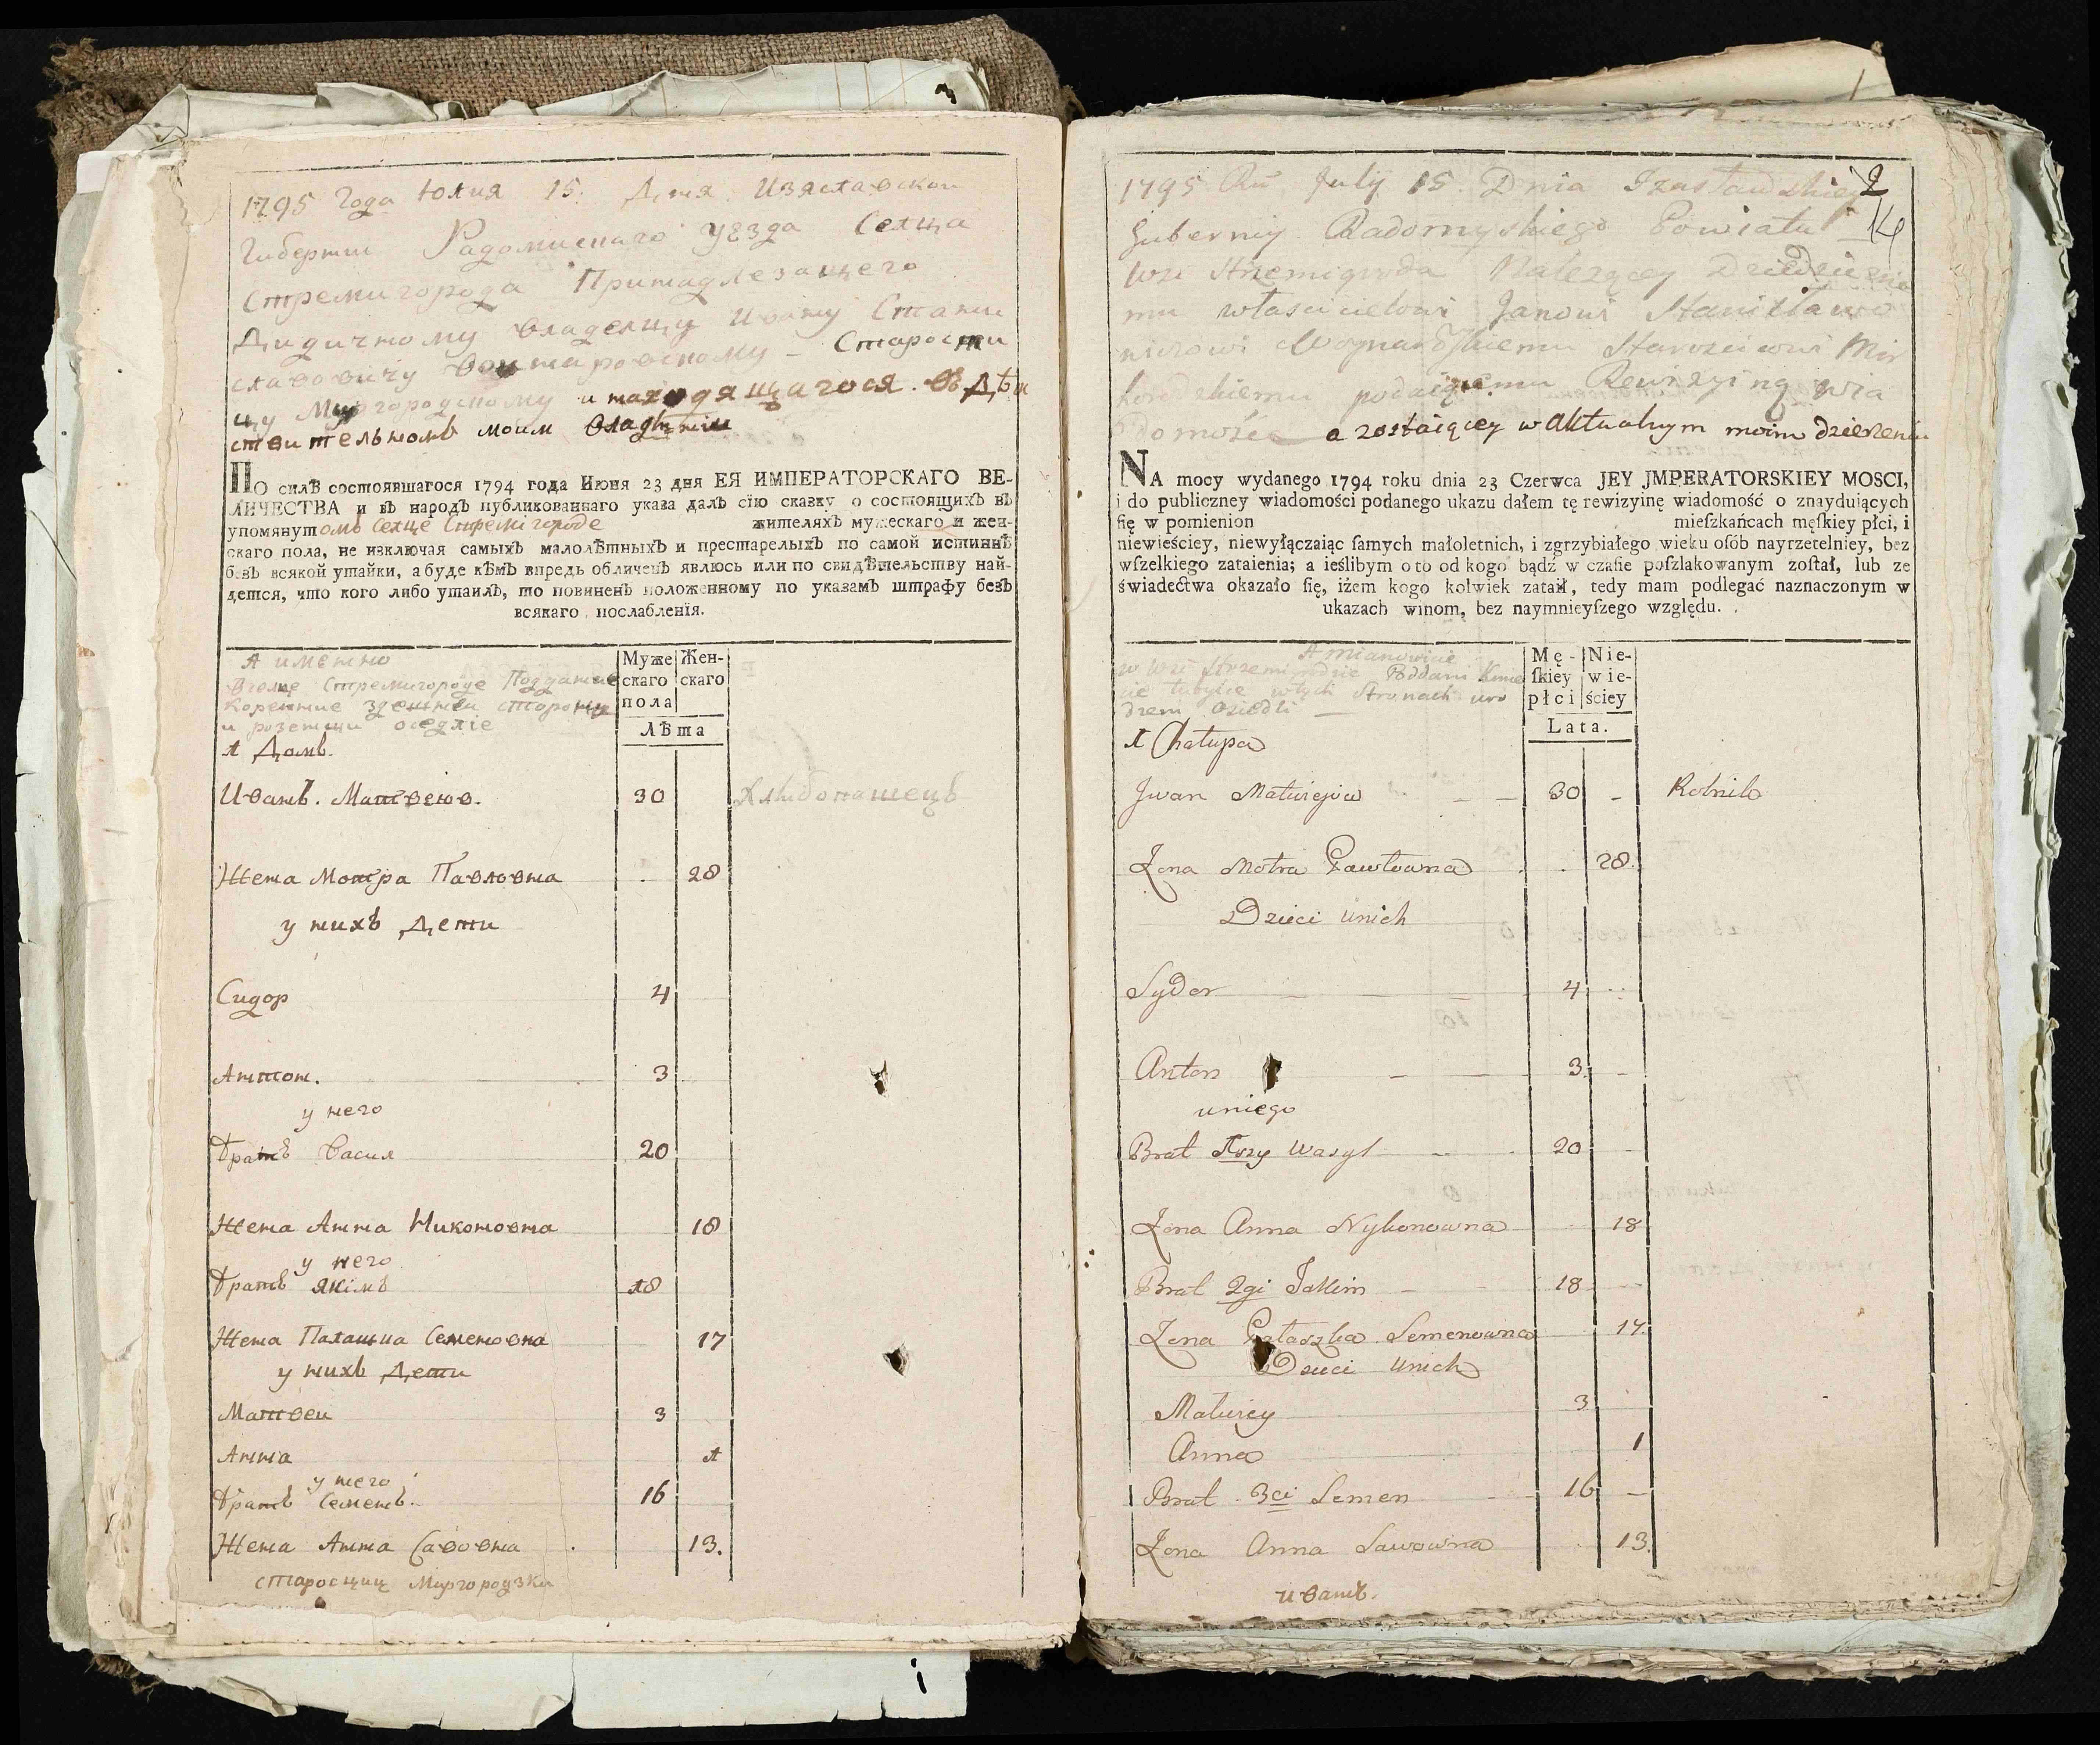 1795 Года Юлия 15. Дня Изяславской
Губернии Радомиского уезда Селца
Стремигорода Принадлезащего
Дидичному владелцу Ивану Стани
славовичу Старости
цу Миргородскому и находящагося. въ Дѣи
ствительномъ моим владѣнии
ПО силѣ состоявшагося 1794 года Июня 23 дня ЕЯ ИМПЕРАТОРСКАГО ВЕ-
ЛИЧЕСТВА и въ народъ публикованнаго указа далъ сїю сказку о состоящихъ въ
упомянутомъ селце Стремигороде жителяхъ мужескаго и жен-
скаго пола, не изключая самыхъ малолѣтныхъ и престарелыхъ по самой истиннѣ
безъ всякой утайки, а буде кѣмъ впредь обличенъ явлюсь или по свидѣтельству най-
дется, что кого либо утаилъ, то повиненъ положенному по указамъ штрафу безъ
всякаго послабленїя.
А именно
Вселце Стремигороде Подданые
Коренние здешнеи стороны
и розенци оседліе
Муже
скаго
пола
Жен-
скаго
Лѣта
1 Домъ.
Иванъ. Матвеюв. 30 Хлибопашецъ
Жена Мотра Павловна 28
у нихъ Дети
Сидор 4
Антон. 3
у него
Братъ Васил 20
Жена Анна Никоновна 18
у него
Братъ Якімъ 18
Жена Палашка Семеновна 17
у нихъ Дети
Матвеи 3
Анна 1
у него
Братъ Семенъ. 16
Жена Анна Савовна 13.
старосциц Миргородзки
2
14
1795 Ru July 15. Dnia Izasławskiey
Gubernij Radomyskiego Powiatu
wsi Stremigroda Nalezącey Dziedziczne
mu włascicielowi Janowi Stanisławo
wiczowi Staroscicowi Mir
horodzkiemu podaiącemu Rewizyiną wia
domość a zostaiącey w aktualnym moim dzierzeniu
NA mocy wydanego 1794 roku dnia 23 Czerwca JEY JMPERATORSKIEY MOSCI,
i do publiczney wiadomości podanego ukazu dałem tę rewizyinę wiadomość o znayduiących
ſię w pomienion mieſzkańcach męſkiey płci, i
niewieściey, niewyłączaiąc ſamych małoletnich, i zgrzybiałego wieku oſób nayrzetelniey, bez
wſzelkiego zataienia; a ieślibym o to od kogo bądź w czaſie poſzlakowanym zoſtał, lub ze
świadectwa okazało ſię, iżem kogo kolwiek zataił, tedy mam podlegać naznaczonym w
ukazach winom, bez naymnieyſzego względu.
A mianowicie
w wsi Strzemigrodzie Poddani Kmie
cie tutejsi w tych Stronach uro
dzeni osiedli
Mę-
ſkiey
płci
Nie-
wie-
ściey
Lata.
1 Chałupa
Jwan Matwiejów 30 Rolnik
Zona Motra Pawłowna 28.
Dzieci unich
Sydor 4
Anton 3
uniego
Brat 1szy Wasyl 20
Zona Anna Nykonowna 18
Brat 2gi Jakim 18
Zona Pałaszka Semenowna 17.
Dzieci unich
Matwiey 3
Anna 1
Brat 3ci Semen 16
Zona Anna Sawowna 13.
иванъ.